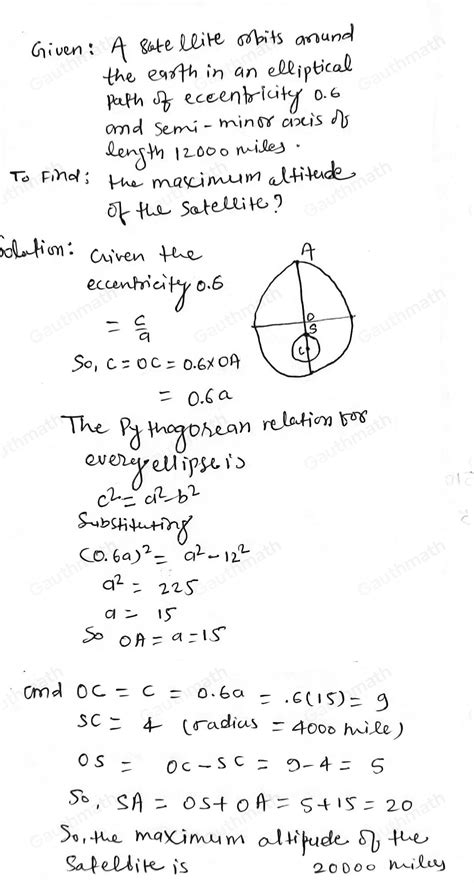 Given: A satellite orbits around
the earth in an elliptical
path of eccentricity 0.6
and semi-minor axis of
length 12000 miles.
To Find: the maximum altitude
of the satellite?
Solution: Given the
eccentricity 0.6
= c/a
So, C = OC = 0.6×OA
= 0.6a
A
O
S
C
The Pythagorean relation for
every ellipse is
c² = a² - b²
Substituting
(0.6a)² = a² - 12²
a² = 225
a = 15
So OA = a = 15
and OC = C = 0.6a = .6(15) = 9
SC = 4 (radius = 4000 mile)
OS = OC - SC = 9 - 4 = 5
So, SA = OS + OA = 5 + 15 = 20
So, the maximum altitude of the
Satellite is 20000 miles